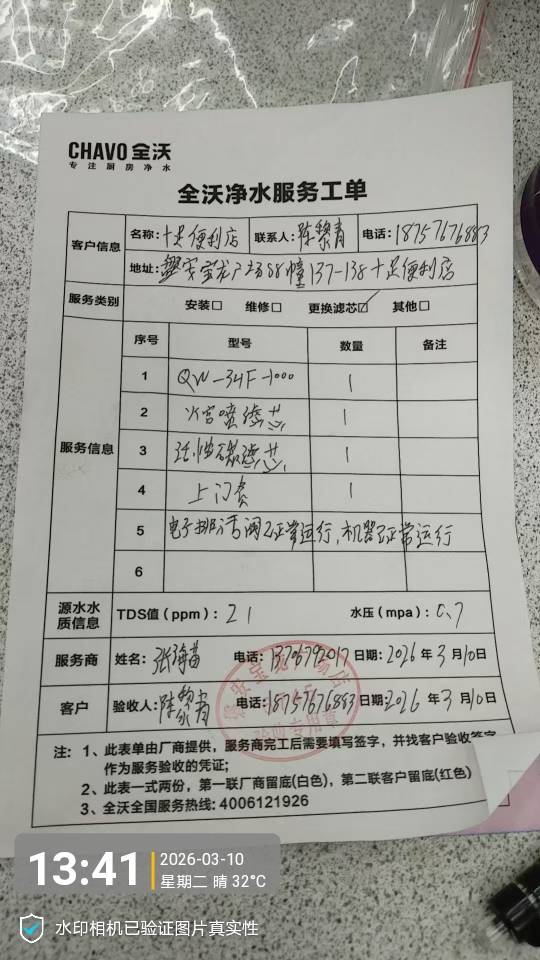 CHAVO 全沃
专注厨房净水
全沃净水服务工单
客户信息
名称：十足便利店 联系人：陈黎青 电话：18757676883
地址：宝龙广场88幢137-138十足便利店
服务类别 安装□ 维修□ 更换滤芯☑ 其他□
服务信息
序号 型号 数量 备注
1 QW-34F-1000 1
2 滤芯 1
3 活性碳滤芯 1
4 上门费 1
5 电子排污阀正常运行，机器正常运行
6
源水水质信息 TDS值（ppm）：21 水压（mpa）：0.7
服务商 姓名： 电话：13706792017 日期：2026年3月10日
客户 验收人：陈黎青 电话：18757676883 日期：2026年3月10日
注：1、此表单由厂商提供，服务商完工后需要填写签字，并找客户验收签字
作为服务验收的凭证；
2、此表一式两份，第一联厂商留底(白色)，第二联客户留底(红色)
3、全沃全国服务热线: 4006121926
13:41
2026-03-10
星期二 晴 32°C
水印相机已验证图片真实性